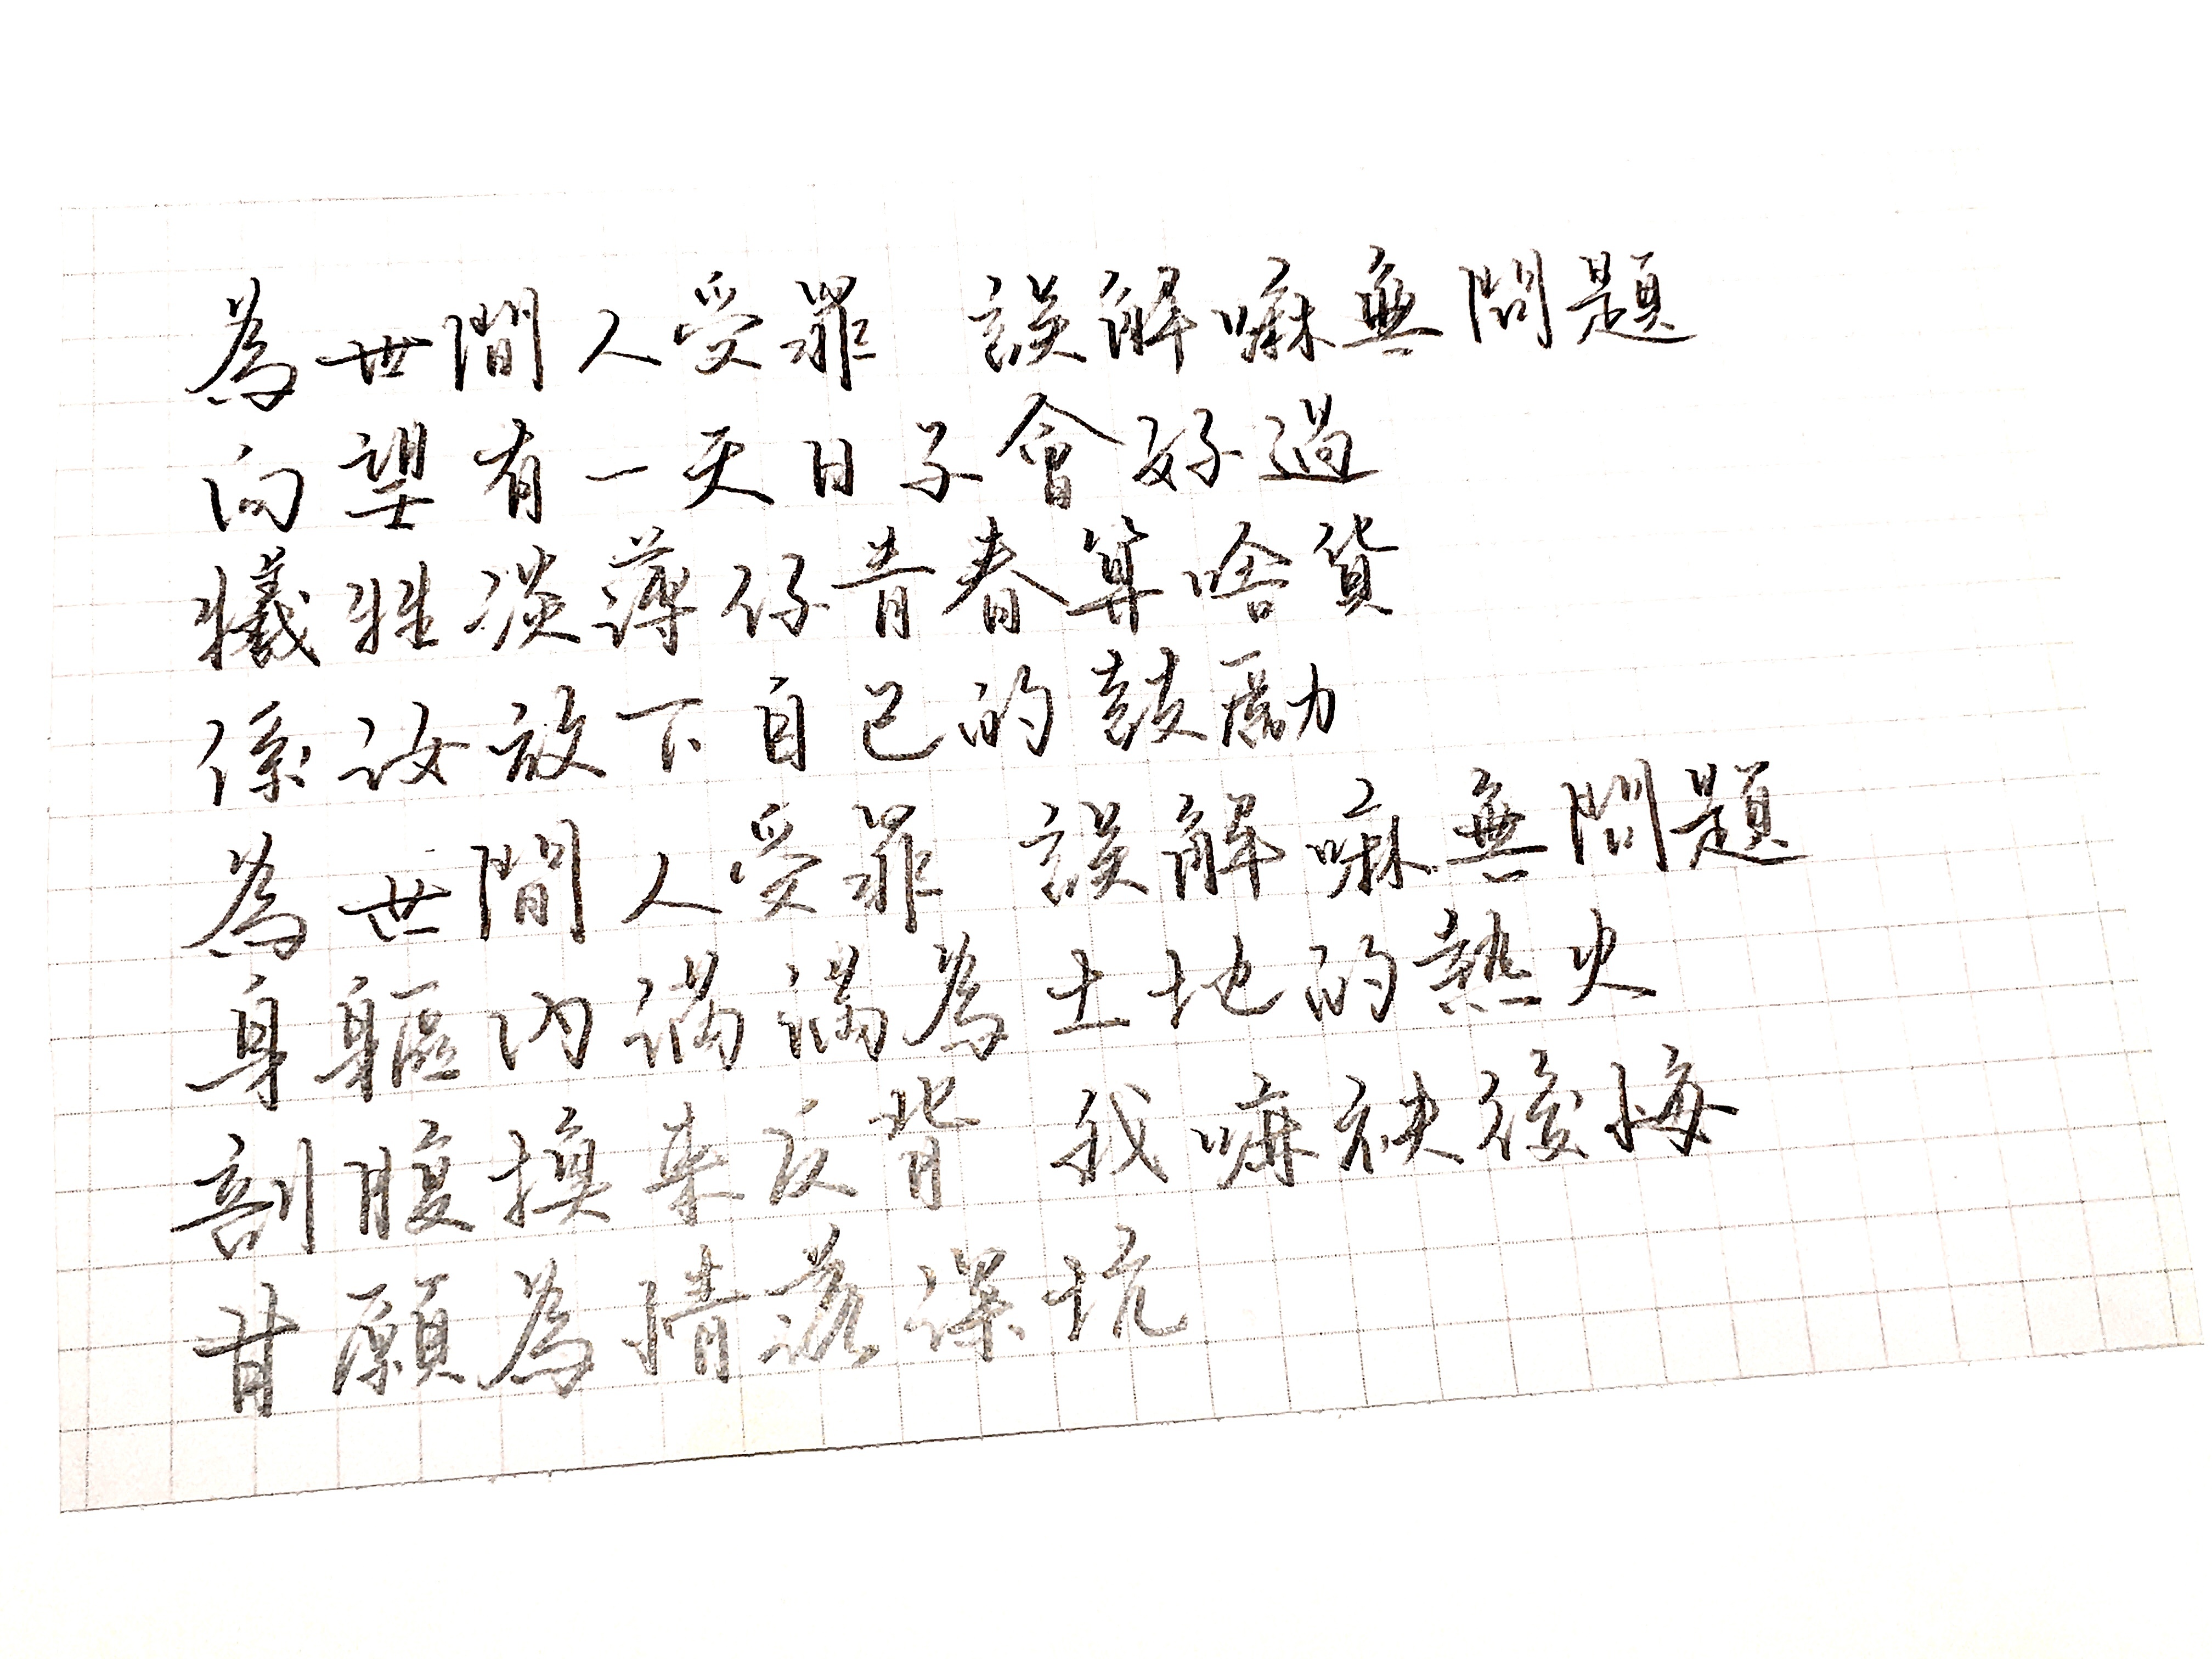 為世間人受罪 誤解嘛無問題
向望有一天日子會好過
犧牲淡薄仔青春算啥貨
係汝放下自己的鼓勵
為世間人受罪 誤解嘛無問題
身軀內滿滿為土地的熱火
剖腹換來反背 我嘛袂後悔
甘願為情落深坑